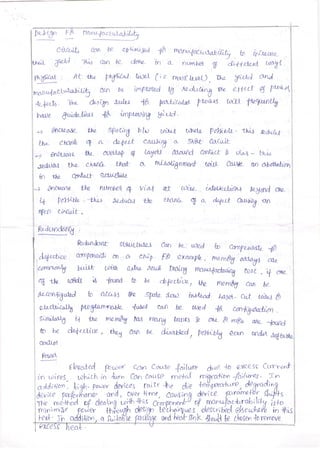 Design For Manufacturability
Circuits can be optimised for manufacturability to increase
their yield. This can be done in a number of different ways
Physical : At the physical level (i.e mask level), the yield and
manufacturability can be improved by reducing the effect of process
defects. The design rules for particular process will frequently
have guidelines for improving yield.
→ Increase the spacing b/w wires where possible - this reduces
the chance of a defect causing a short circuit
→ Increase the overlap of layers around contacts & vias - this
reduces the chance that a misalignment will cause an aberration
in the contact structure
→ Increase the number of vias at wire intersections beyond one
if possible - this reduces the chance of a defect causing an
open circuit.
Redundancy
Redundant structures can be used to compensate for
defective components on a chip. For example, memory arrays are
commonly built with extra During manufacturing test, if one
of the words is found to be defective, the memory can be
reconfigured to access the spare row instead. Laser-cut wires or
electrically programmable fuses can be used for configuration.
Similarly if the memory has many banks & one or more are found
to be defective, they can be disabled, possibly even under software
control
Power
Elevated power can cause failure due to excess current
in wires, which in turn can cause metal migration failures. In
addition, high-power devices raise the die temperature, degrading
device performance and, over time, causing device parameter shifts
The method of dealing with this component of manufacturability is to
minimise power through design techniques described elsewhere in this
text. In addition, a suitable package and heat sink should be chosen to remove
excess heat.